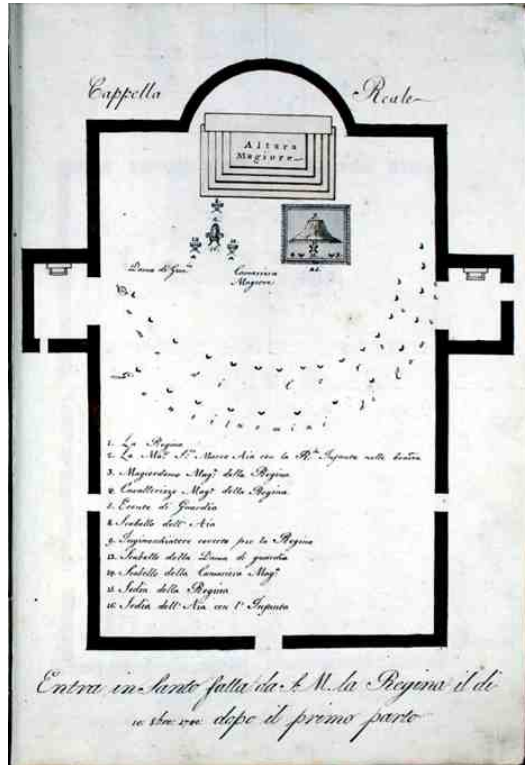 Cappella Reale
Altare
Magiore
Dama di
Camariera
Magiore
1. La Regina
2. La Mag. Sra. Marco Aia con la R.le Infanta nelle braccia
3. Magiordomo Mag. della Regina
Cavallerizzo Mag. della Regina
Esente di Guardia
Scabello dell' Aia
Inginocchiatore coverto per la Regina
13. Scabello della Dama di guardia
14. Scabello della Camariera Mag.
15. Sedia della Regina
16. Sedia dell' Aia con l' Infanta
Entra in Santo fatta da S. M. la Regina il di
dopo il primo parto